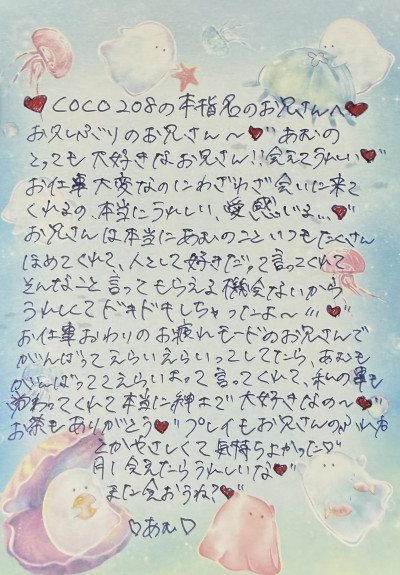 ♥COCO 208の本指名のお兄さんへ♥
お久しぶりのお兄さん〜♥あむの
とっても大好きなお兄さん!!会えてうれしい♥
お仕事大変なのにわざわざ会いに来て
くれるの、本当にうれしい、愛感じる…♥
お兄さんは本当にあむのこといつもたくさん
ほめてくれて、人として好きだって言ってくれて
そんなこと言ってもらえる機会ないから
うれしくてドキドキしちゃったよ〜♥
お仕事おわりのお疲れモードのお兄さんで
がんばってえらいえらいってしてたら、あむも
がんばっててえらいよって言ってくれて、私の事も
労わってくれて本当に紳士で大好きなの〜♥
お茶もありがとう♥プレイもお兄さんのふれ方
とかやさしくて気持ちよかった♡
月1会えたらうれしいな♥
また会おうね?♥
♡あむ♡